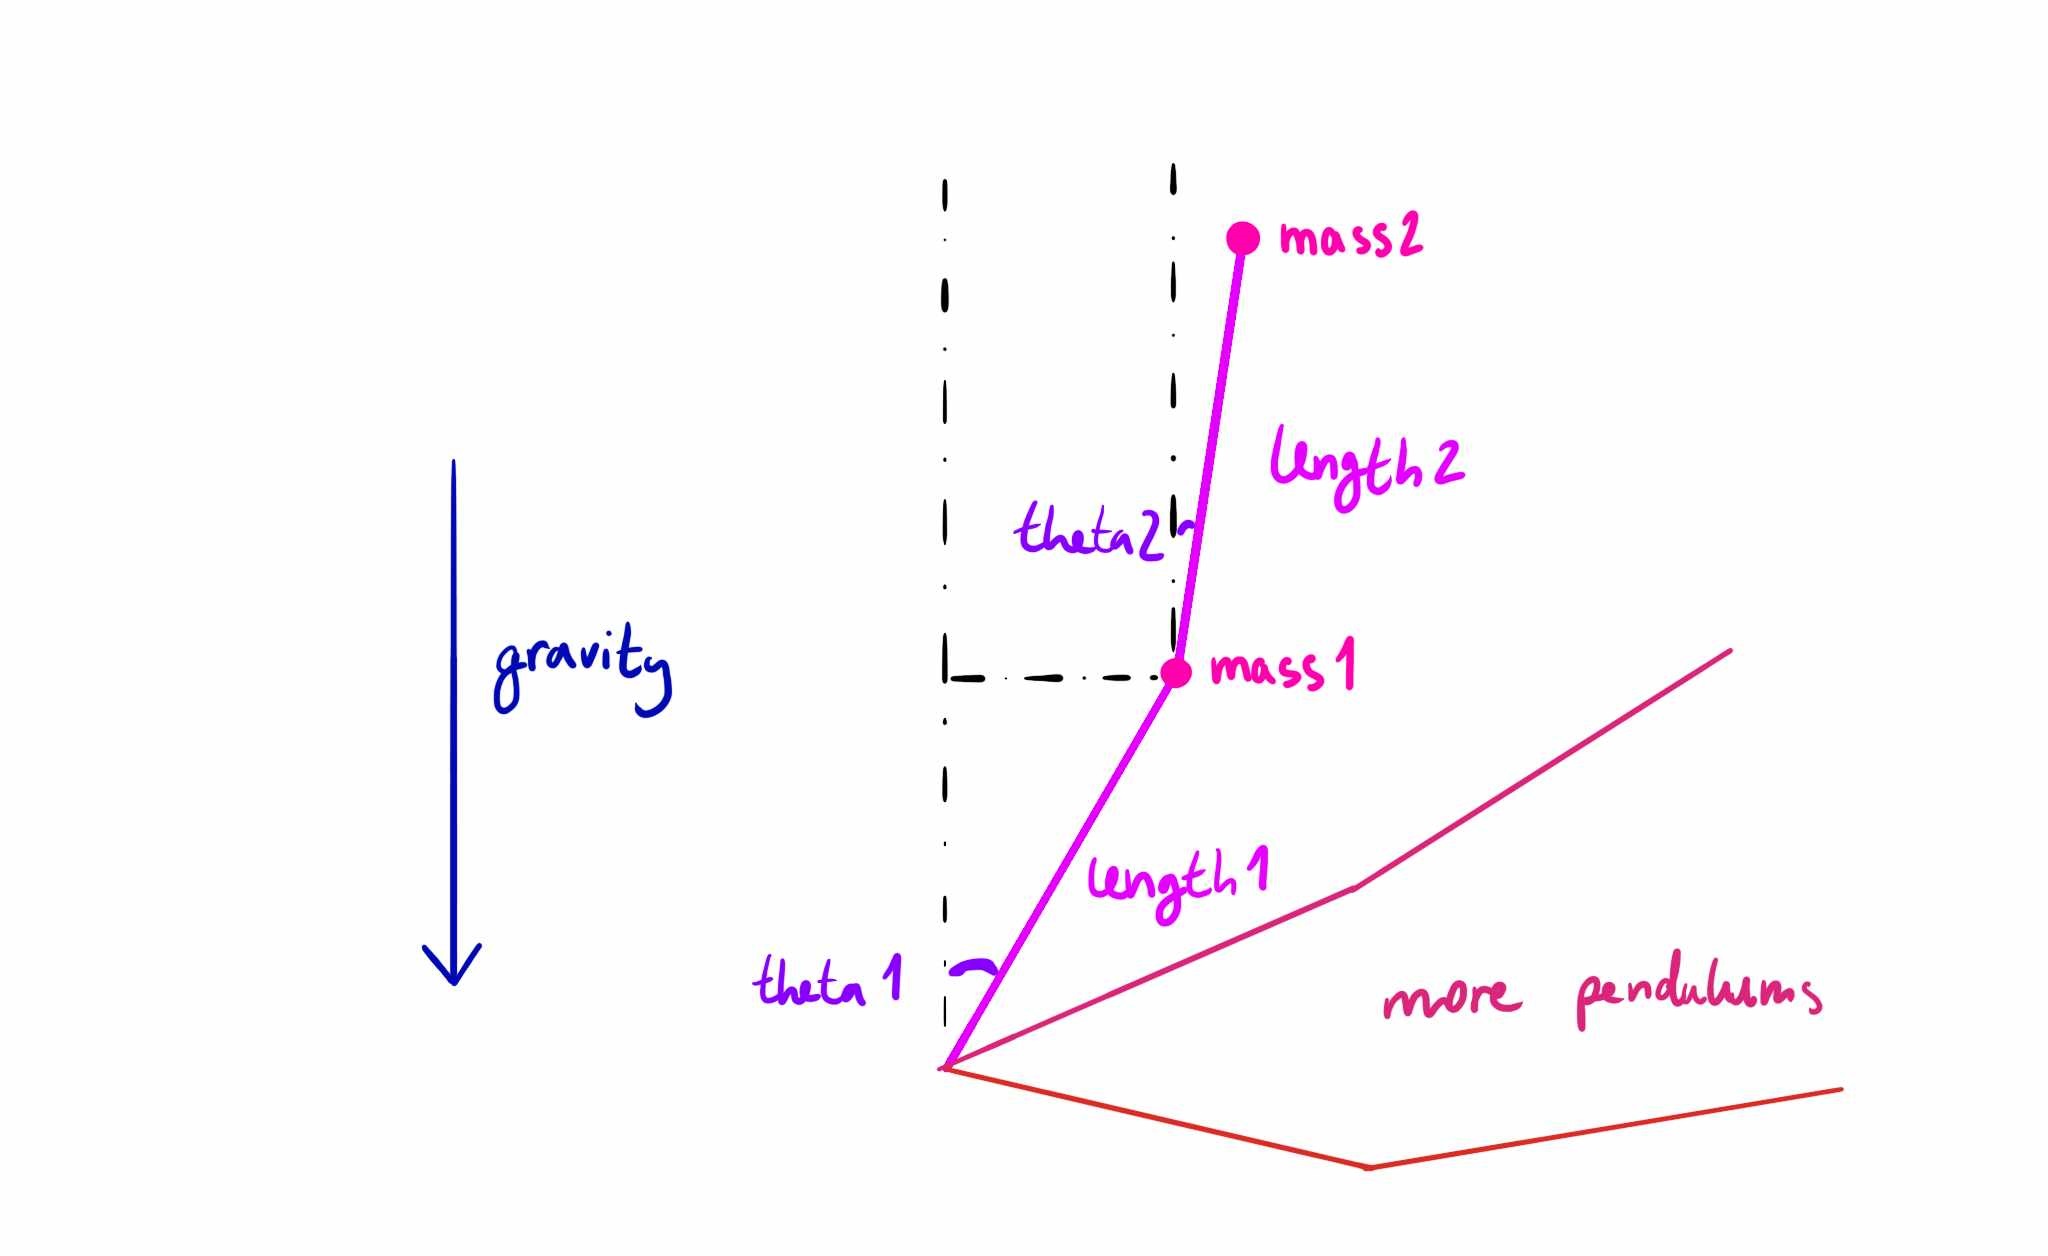 mass2
length2
theta2
gravity
mass1
length1
theta1
more pendulums